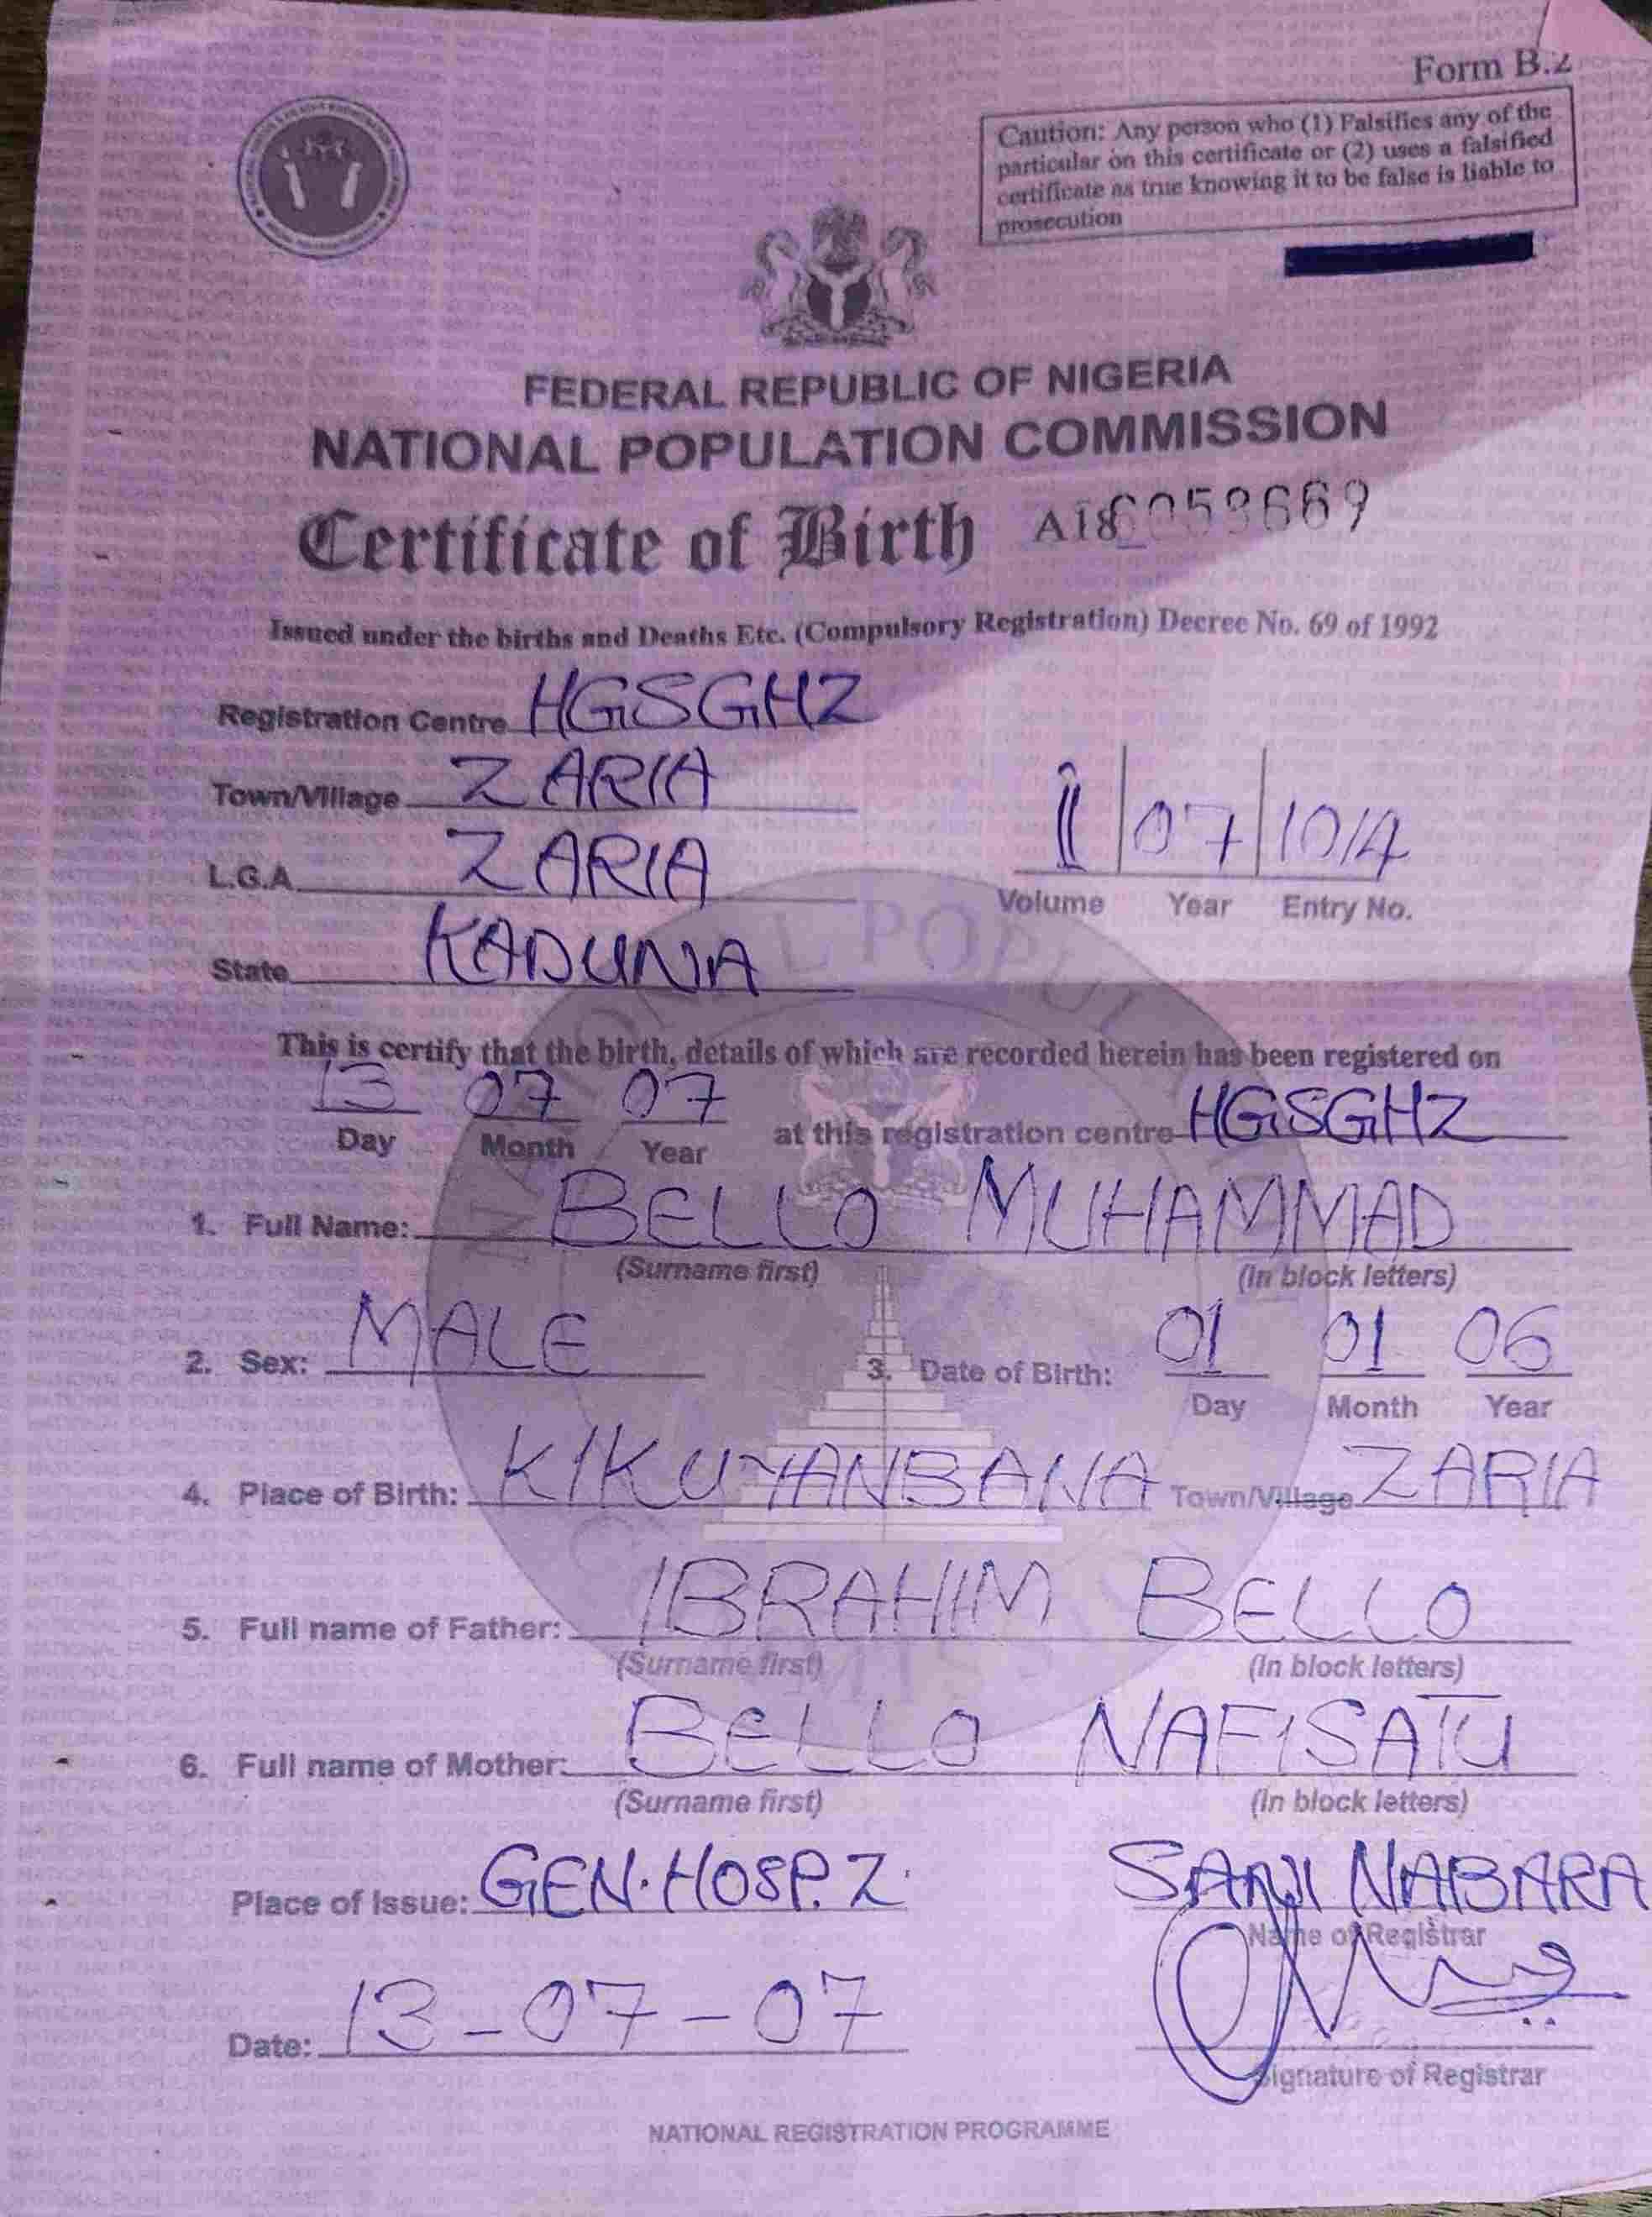 Form B.2
Caution: Any person who (1) Falsifies any of the
particular on this certificate or (2) uses a falsified
certificate as true knowing it to be false is liable to
prosecution
FEDERAL REPUBLIC OF NIGERIA
NATIONAL POPULATION COMMISSION
Certificate of Birth
Issued under the births and Deaths Etc. (Compulsory Registration) Decree No. 69 of 1992
Registration Centre HGSGHZ
Town/Village ZARIA
L.G.A ZARIA
State KADUNA
07
Volume Year Entry No.
This is certify that the birth, details of which are recorded herein has been registered on
13 07 07 at this registration centre HGSGHZ
Day Month Year
1. Full Name: BELLO MUHAMMAD
(Surname first) (In block letters)
2. Sex: MALE 3. Date of Birth: 01 01 06
Day Month Year
4. Place of Birth: Town/Village ZARIA
5. Full name of Father: IBRAHIM BELLO
(Surname first) (In block letters)
6. Full name of Mother: BELLO NAFISATU
(Surname first) (In block letters)
Place of Issue: GEN. HOSP. Z. NABARA
Name of Registrar
Date: 13-07-07
Signature of Registrar
NATIONAL REGISTRATION PROGRAMME